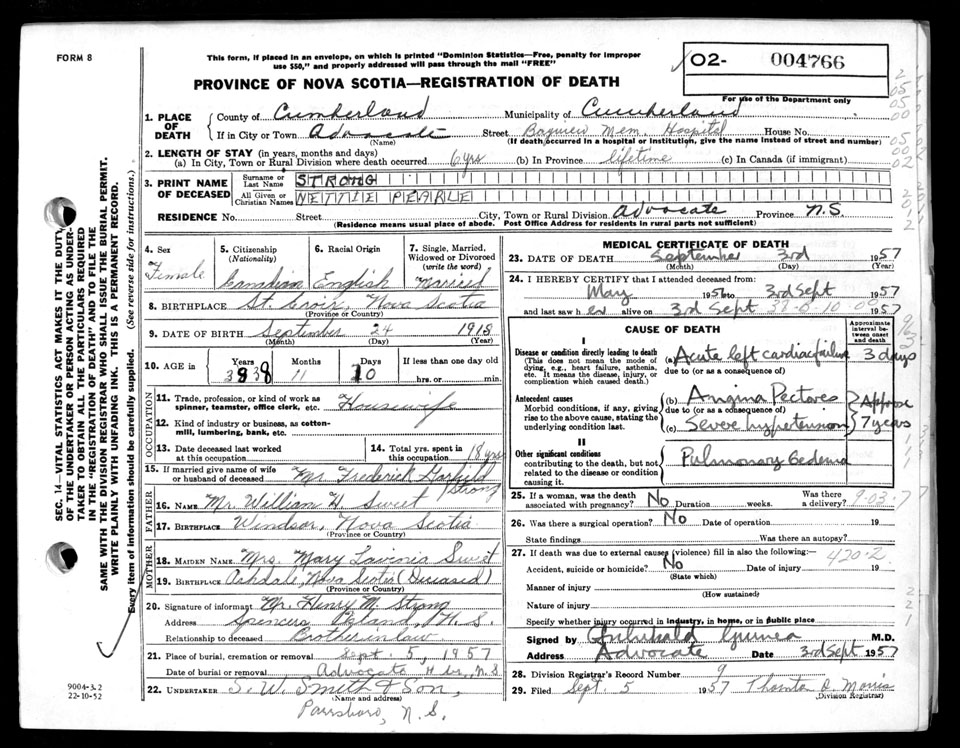 FORM 8
This form, if placed in an envelope, on which is printed "Dominion Statistics—Free, penalty for improper
use $50," and properly addressed will pass through the mail "FREE"
PROVINCE OF NOVA SCOTIA—REGISTRATION OF DEATH
02- 004766
For use of the Department only
1. PLACE OF DEATH
County of Cumberland Municipality of Cumberland
If in City or Town Advocate Street Bayview Mem. Hospital House No.
(Name) (If death occurred in a hospital or institution, give the name instead of street and number)
2. LENGTH OF STAY (in years, months and days)
(a) In City, Town or Rural Division where death occurred 6 yrs (b) In Province lifetime (c) In Canada (if immigrant)
3. PRINT NAME OF DECEASED
Surname or Last Name STRONG
All Given or Christian Names NETTIE PEARLE
RESIDENCE No. Street City, Town or Rural Division Advocate Province N.S.
(Residence means usual place of abode. Post Office Address for residents in rural parts not sufficient)
4. Sex Female
5. Citizenship (Nationality) Canadian
6. Racial Origin English
7. Single, Married, Widowed or Divorced (write the word) Married
8. BIRTHPLACE St. Croix, Nova Scotia
(Province or Country)
9. DATE OF BIRTH September 24 1918
(Month) (Day) (Year)
10. AGE in Years 38 Months 11 Days 10 If less than one day old hrs. or min.
OCCUPATION
11. Trade, profession, or kind of work as spinner, teamster, office clerk, etc. Housewife
12. Kind of industry or business, as cotton-mill, lumbering, bank, etc.
13. Date deceased last worked at this occupation
14. Total yrs. spent in this occupation 18 yrs
15. If married give name of wife or husband of deceased Mr. Frederick Garfield Strong
FATHER
16. NAME Mr. William H. Sweet
17. BIRTHPLACE Windsor, Nova Scotia
(Province or Country)
MOTHER
18. MAIDEN NAME Mrs. Mary Lavinia Sweet
19. BIRTHPLACE Ashdale, Nova Scotia (Deceased)
(Province or Country)
20. Signature of informant Mr. Henry M. Strong
Address Spencers Island, N.S.
Relationship to deceased Brother in law
21. Place of burial, cremation or removal Sept. 5, 1957
Date of burial or removal Advocate Hbr, N.S
22. UNDERTAKER S. W. Smith & Son,
(Name and address)
Parrsboro, N.S.
MEDICAL CERTIFICATE OF DEATH
23. DATE OF DEATH September 3rd 1957
(Month) (Day) (Year)
24. I HEREBY CERTIFY that I attended deceased from:
May 1956 to 3rd Sept 1957
and last saw her alive on 3rd Sept 1957
CAUSE OF DEATH
Approximate interval between onset and death
I
Disease or condition directly leading to death
(This does not mean the mode of dying, e.g., heart failure, asthenia, etc. It means the disease, injury, or complication which caused death.)
(a) Acute left cardiac failure 3 days
due to (or as a consequence of)
Antecedent causes
Morbid conditions, if any, giving rise to the above cause, stating the underlying condition last.
(b) Angina Pectoris
due to (or as a consequence of)
(c) Severe hypertension
Approx 7 years
II
Other significant conditions
contributing to the death, but not related to the disease or condition causing it.
Pulmonary Oedema
25. If a woman, was the death associated with pregnancy? No Duration weeks. Was there a delivery?
9-03-7
26. Was there a surgical operation? No Date of operation 19
State findings Was there an autopsy?
27. If death was due to external causes (violence) fill in also the following:—
420-2
Accident, suicide or homicide? No Date of injury 19
(State which)
Manner of injury
(How sustained)
Nature of injury
Specify whether injury occurred in industry, in home, or in public place
Signed by Archibald M.D.
Address Advocate Date 3rd Sept 1957
28. Division Registrar's Record Number 9
29. Filed Sept. 5 1957 Thornton A. Morris
(Division Registrar)
SEC. 14—VITAL STATISTICS ACT MAKES IT THE DUTY
OF THE UNDERTAKER OR PERSON ACTING AS UNDER-
TAKER TO OBTAIN ALL THE PARTICULARS REQUIRED
IN THE "REGISTRATION OF DEATH" AND TO FILE THE
SAME WITH THE DIVISION REGISTRAR WHO SHALL ISSUE THE BURIAL PERMIT.
WRITE PLAINLY WITH UNFADING INK. THIS IS A PERMANENT RECORD.
Every item of information should be carefully supplied. (See reverse side for instructions.)
9004-3.2
22-10-52